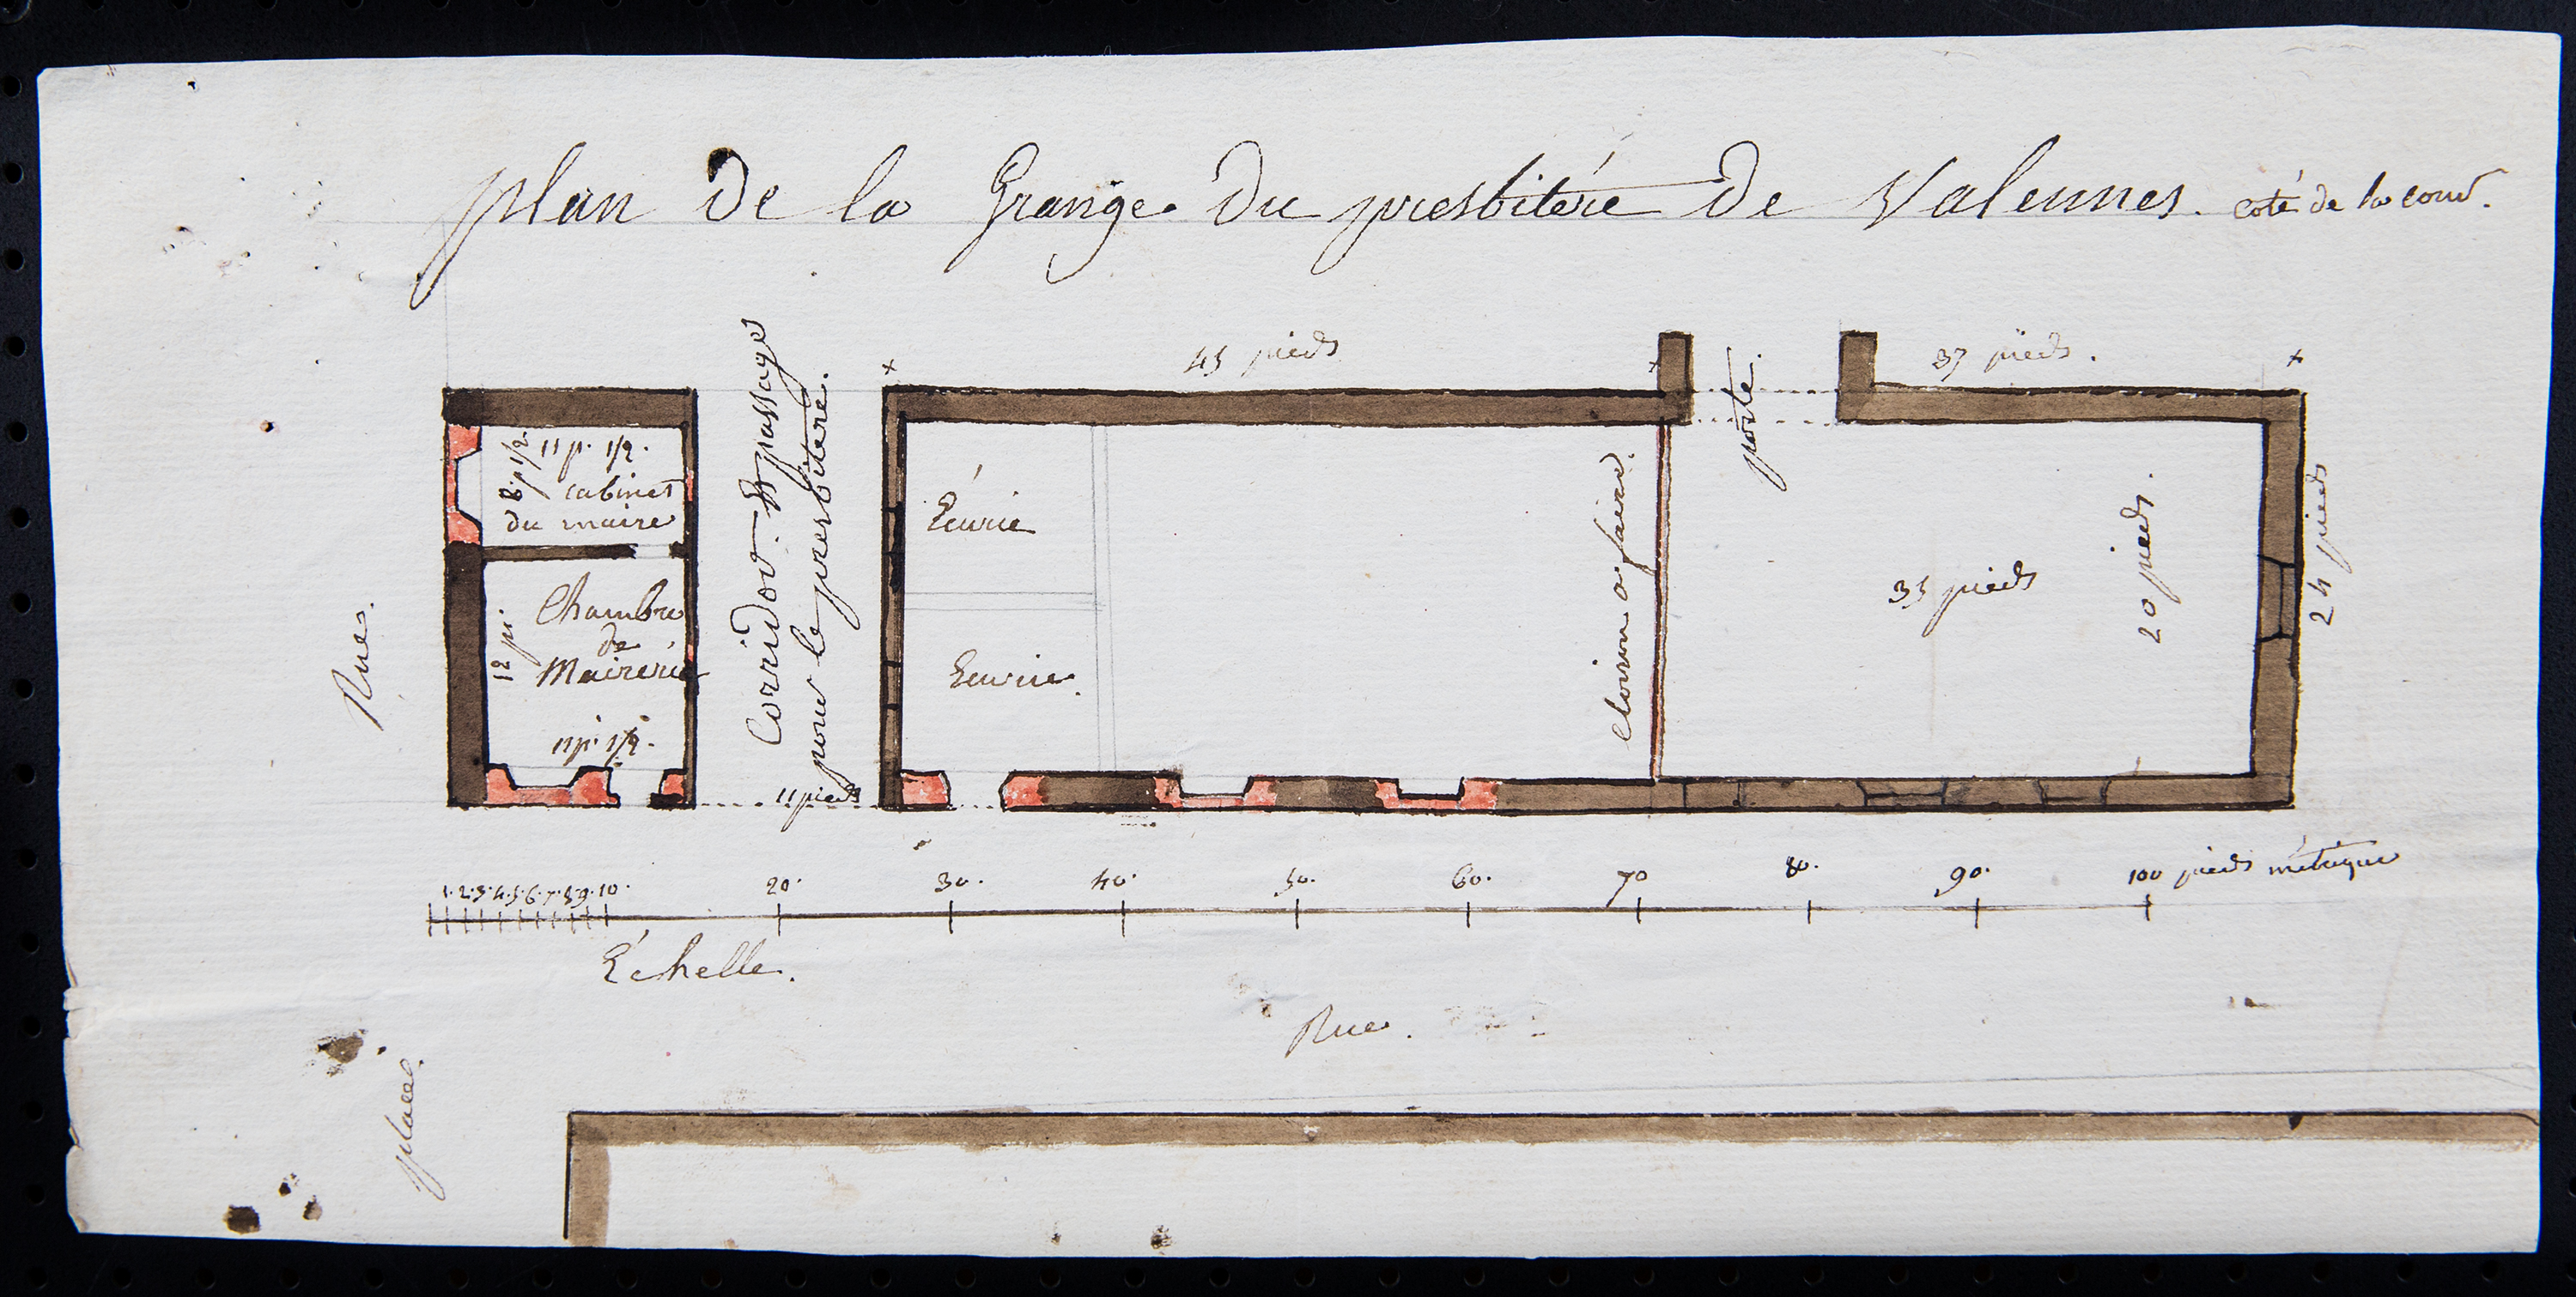 plan de la Grange du presbitére de Valennes. coté de la cour.
45 pieds
37 pieds.
porte.
8.p 1/2.
11 p. 1/2.
cabinet
du maire
Chambre
de
Mairerie
12 pi
11 p. 1/2.
Corridor. & passage
pour le presbitere.
11 pieds
Écurie
Ecurie.
cloison a faire.
35 pieds
20 pieds.
24 pieds
Rue.
1. 2. 3. 4. 5. 6. 7. 8. 9. 10. 20. 30. 40. 50. 60. 70 80. 90. 100 pieds métrique
Échelle.
Rue.
place.